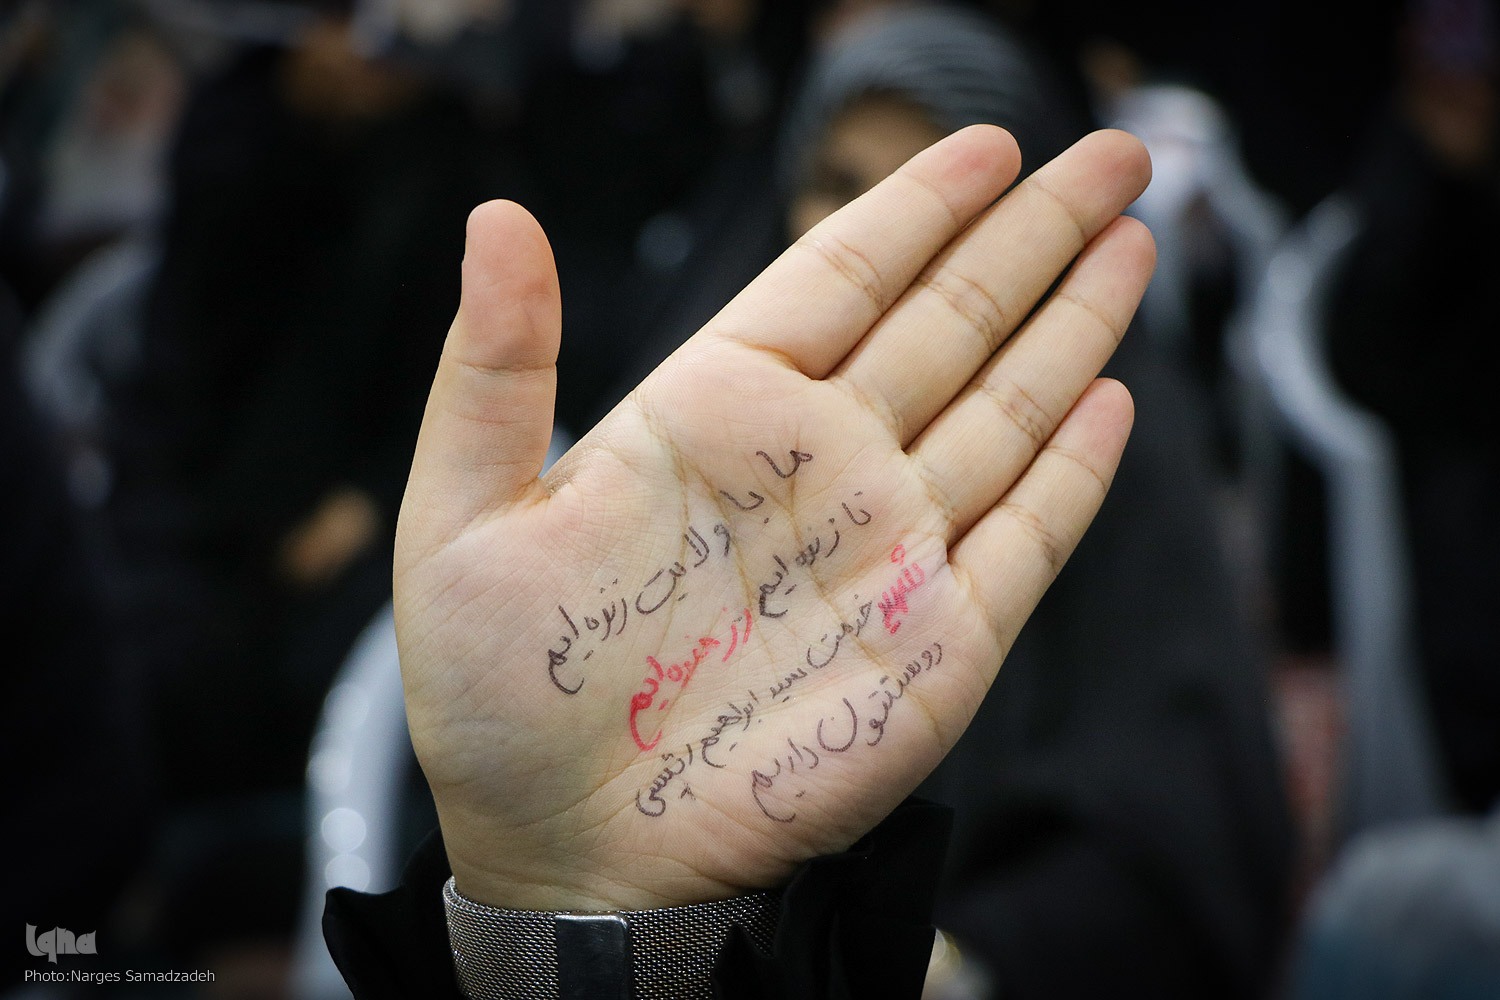 ما با ولایت زنده ایم
تا زنده ایم رزمنده ایم
شهید خدمت سید ابراهیم رئیسی
دوستتون داریم
Iqna
Photo:Narges Samadzadeh